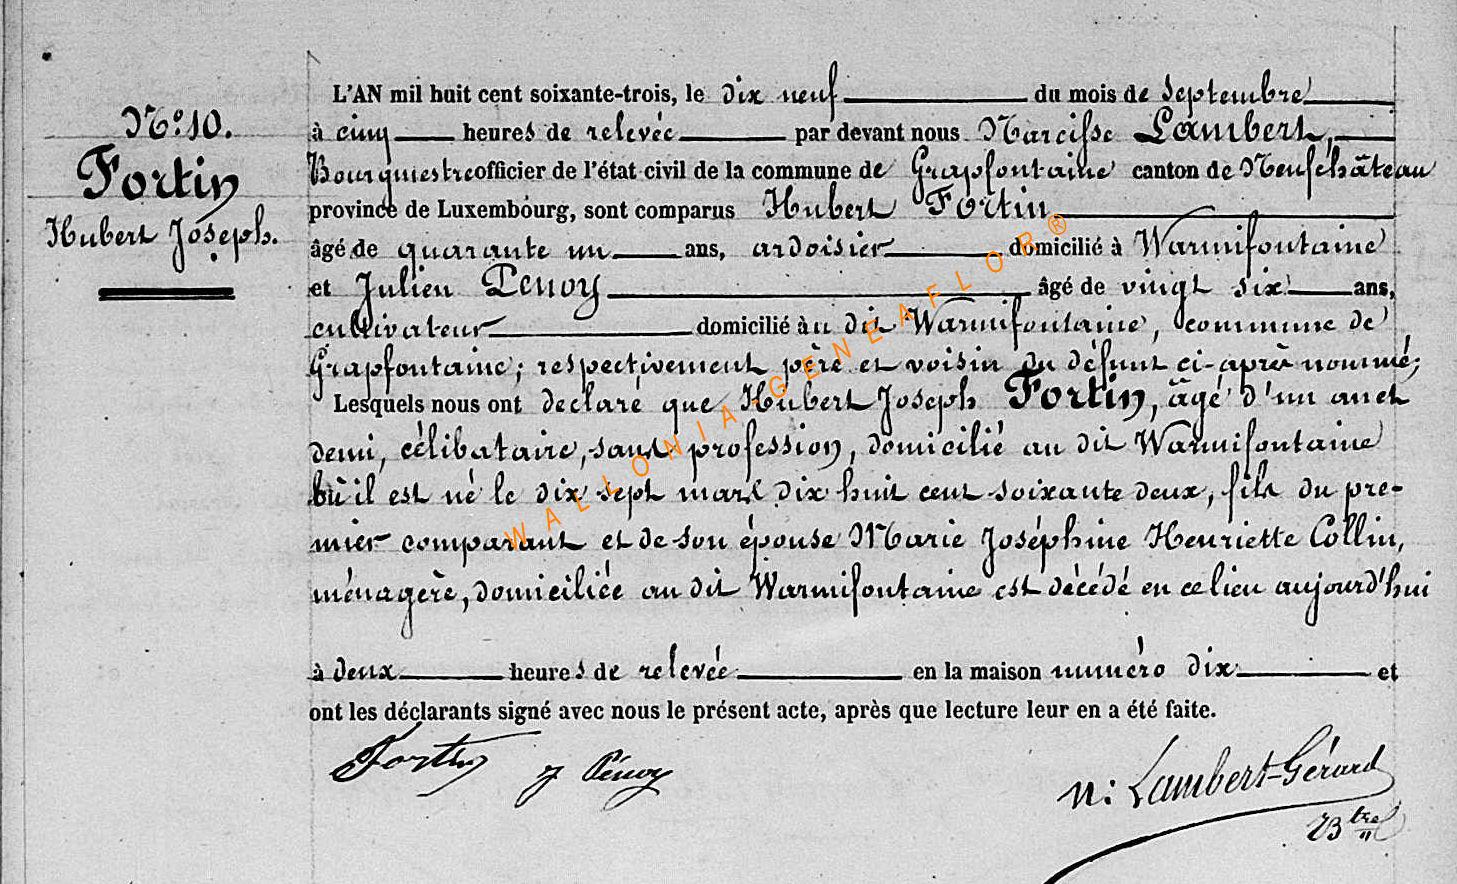 L'AN mil huit cent soixante-trois, le dix neuf du mois de Septembre
N° 10.
à cinq heures de relevée par devant nous Narcisse Lambert,
Fortin
Bourgmestre officier de l'état civil de la commune de Grapfontaine canton de Neufchâteau
province de Luxembourg, sont comparus Hubert Fortin
Hubert Joseph.
âgé de quarante un ans, ardoisier domicilié à Warmifontaine
et Julien Penoy âgé de vingt six ans,
cultivateur domicilié au dit Warmifontaine, commune de
Grapfontaine; respectivement père et voisin du défunt ci-après nommé;
Lesquels nous ont déclaré que Hubert Joseph Fortin, âgé d'un an et
demi, célibataire, sans profession, domicilié au dit Warmifontaine
où il est né le dix sept mars dix huit cent soixante deux, fils du pre-
mier comparant et de son épouse Marie Joséphine Henriette Collin,
ménagère, domiciliée au dit Warmifontaine est décédé en ce lieu aujourd'hui
à deux heures de relevée en la maison numéro dix et
ont les déclarants signé avec nous le présent acte, après que lecture leur en a été faite.
Fortin J Pénoy N: Lambert-Gérard
Btre
WALLONIA-GENEAFLOR®